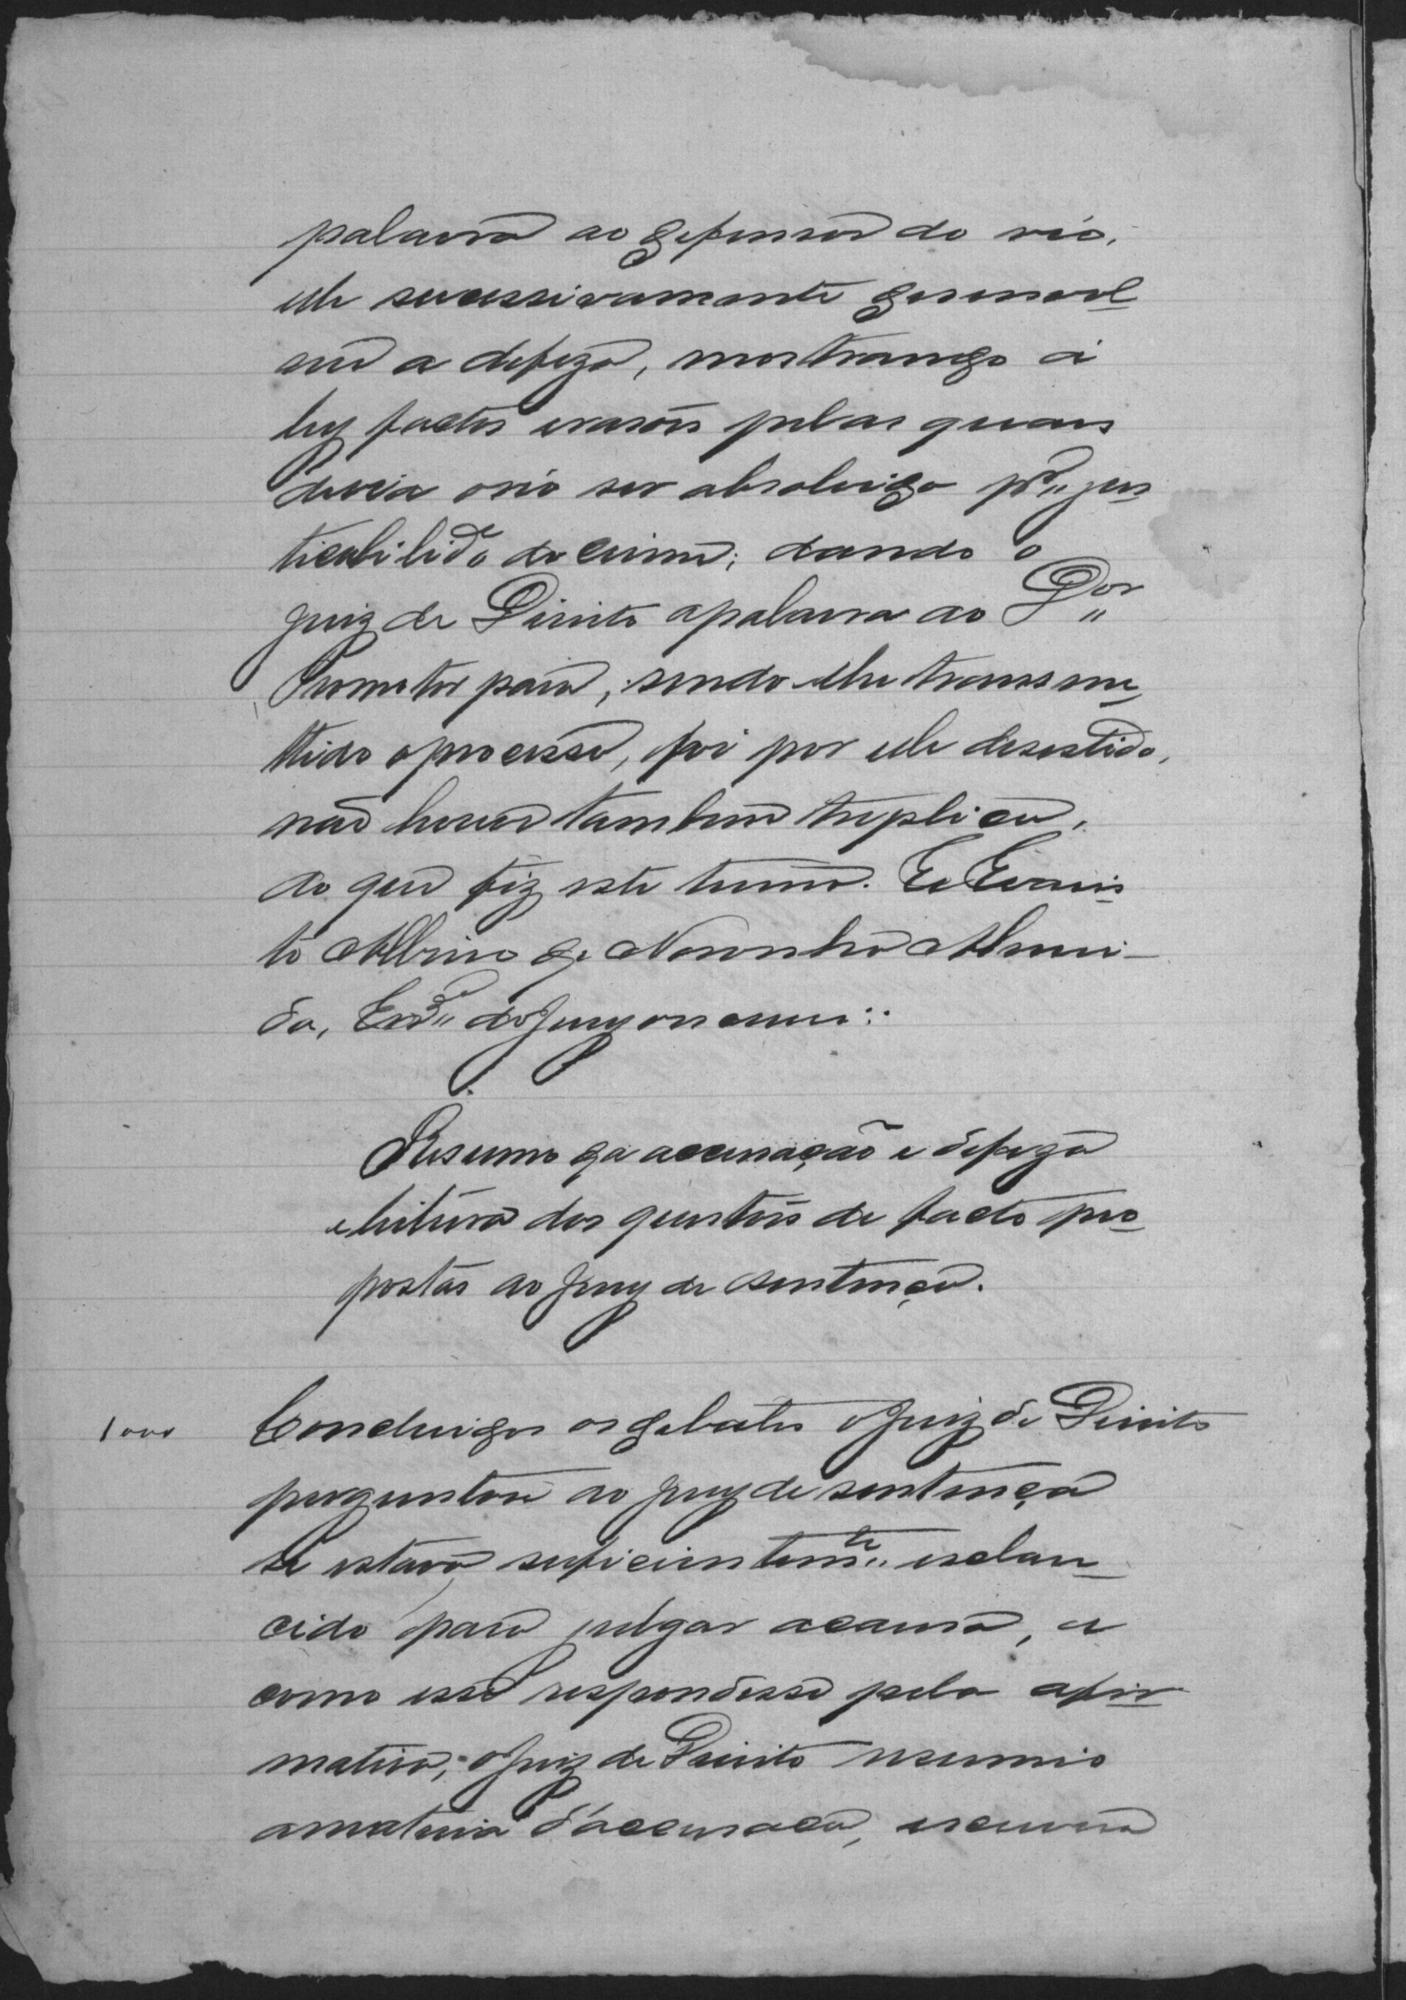 palavra ao defensor do réo,
elle sucessivamente desenvol
veo a defeza, mostrando a
ley factos e rasões pelas quaes
devia o réo ser absolvido pr. jus
ticabilide. do crime; dando o
juiz de Direito a palavra ao Dor.
Promotor para, sendo-lhe transme
ttido o processo, foi por elle desestido,
não houve tambem treplica,
do que fiz este termo. Eu Evaris
to Albino de Noronha Almei-
da, Escr. do Jury o escrevi.
Resumo da accusação e defeza
e leitura dos questões de facto pro
postas ao Jury de sentença.
1000 Concluidos os debates o Juiz de Direito
perguntou ao jury de sentença
se estava suficientemte. esclare
cido para julgar a causa, e
como esse respondesse pela afir
mativa, o Juiz de Direito resumio
a materia d'accusação, escreveo